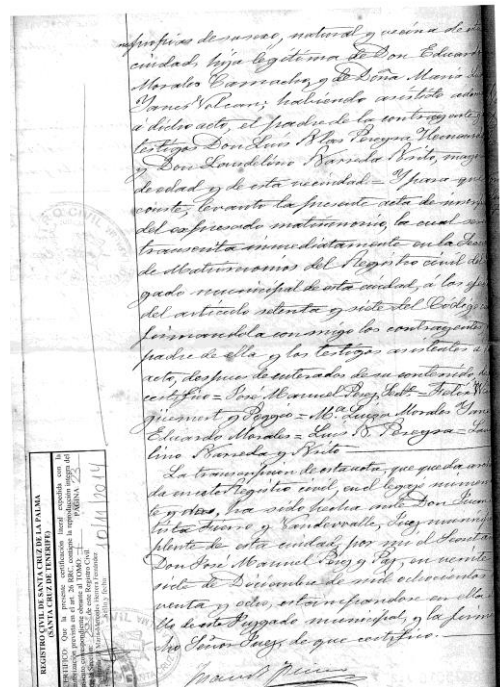 propias de su sexo, natural y vecina de esta
ciudad, hija legítima de Don Eduardo
Morales Camacho, y de Doña Maria
Yanes Volcan; habiendo asistido además
á dicho acto, el padre de la contrayente y
testigos Don Luis Blas Pereyra Hernand
y Don Laudelino Barreda Brito, mayo
de edad y de esta vecindad = Y para que
conste, levanto la presente acta de
del expresado matrimonio, la cual será
transcrita inmediatamente en la Secc
de Matrimonios del Registro civil del
gado municipal de esta ciudad, a los efe
del artículo setenta y siete del Codigo
firmandola conmigo los contrayentes
padre de ella y los testigos asistentes a
acto, despues de enterados de su contenido, de
certifico = José Manuel Perez, Srio = Felix
y Poggio = Mª Luisa Morales Yanes
Eduardo Morales = Luis B. Pereyra = Lau
lino Barreda y Brito
La transcripcion de esta acta, que queda archi
da en este Registro civil, en el legajo numero
ha sido hecha ante Don Juan
tista Fierro y Vandewalle, Juez munici
plente de esta ciudad, por mi el Secreta
Don José Manuel Perez y Paz, en veinte
siete de Diciembre de mil ochocientos
venta y ocho, estampandose en ella
llo de este Juzgado municipal, y la firma
cho Señor Juez, de que certifico.
Juan B. Fierro
REGISTRO CIVIL DE SANTA CRUZ DE LA PALMA
(SANTA CRUZ DE TENERIFE)
CERTIFICO: Que la presente certificación literal expedida con la
autorización prevista en el art. 26 RRC, contiene la reproducción íntegra del
asiento correspondiente obrante al TOMO
PÁGINA 23
de la Sección de este Registro Civil.
10/11/2014